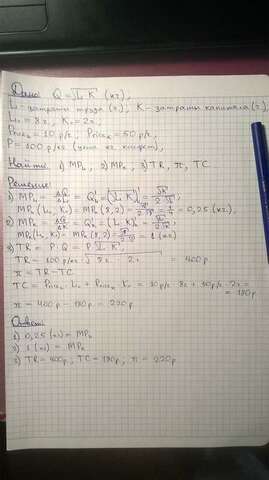 Дано: Q = √L·K (кг),
L - затраты труда (ч), K - затраты капитала (ч)
L₀ = 8 ч, K₀ = 2 ч,
PriceL = 10 р/ч, PriceK = 50 р/ч,
P = 100 р/кг (цена кг. конфет),
Найти: 1) MPL, 2) MPK, 3) TR, π, TC
Решение:
1) MPL = ΔQ/ΔL = Q'L = [√L·K]' = √K/2√L;
MPL (L₀, K₀) = MPL (8, 2) = √2/2√8 = 1/4 = 0,25 (кг),
2) MPK = ΔQ/ΔK = Q'K = [√L·K]' = √L/2√K;
MPK (L₀, K₀) = MPK (8, 2) = √8/2√2 = 1 (кг)
3) TR = P·Q = P √L·K
TR = 100 р/кг √8 ч · 2 ч = 400 р
π = TR - TC
TC = PriceL · L₀ + PriceK · K₀ = 10 р/ч · 8 ч + 50 р/ч · 2 ч =
= 180 р
π = 400 р - 180 р = 220 р
Ответ:
1) 0,25 (кг) = MPL
2) 1 (кг) = MPK
3) TR = 400 р, TC = 180 р, π = 220 р